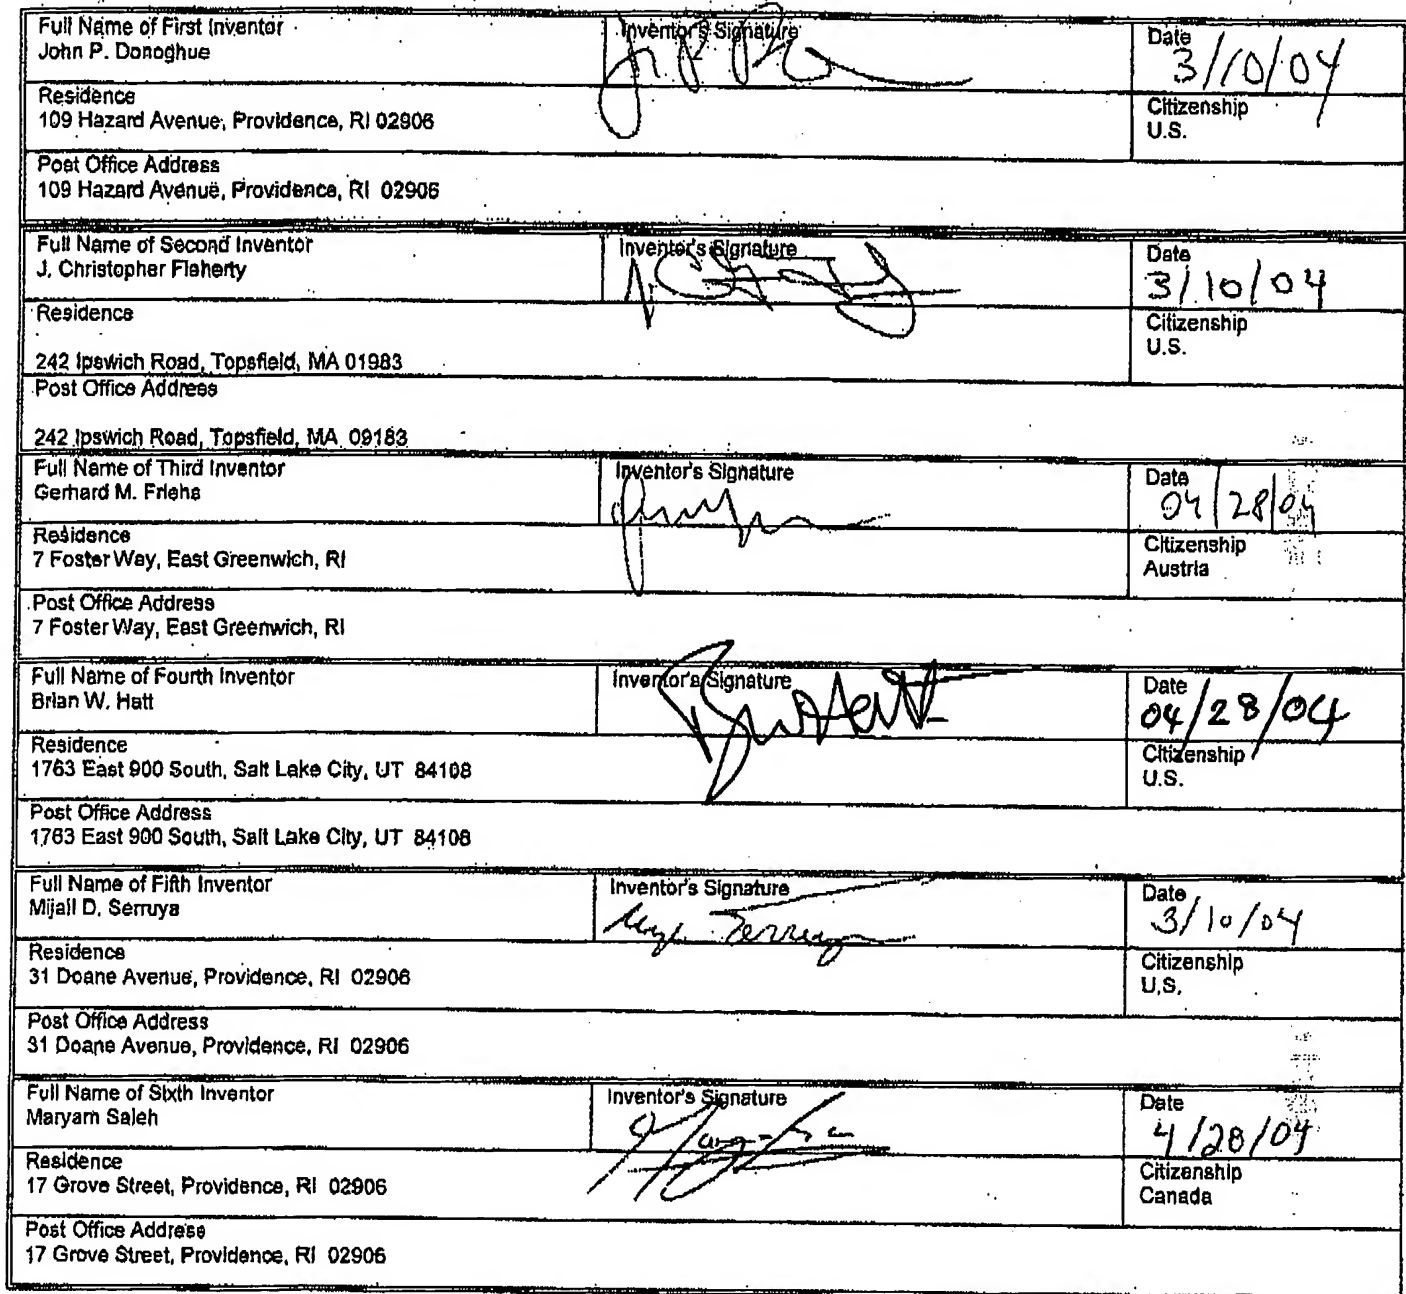 Full Name of First Inventor
John P. Donoghue
Inventor's Signature
Date
3/10/04
Residence
109 Hazard Avenue, Providence, RI 02906
Citizenship
U.S.
Post Office Address
109 Hazard Avenue, Providence, RI 02906
Full Name of Second Inventor
J. Christopher Flaherty
Inventor's Signature
Date
3/10/04
Residence
242 Ipswich Road, Topsfield, MA 01983
Citizenship
U.S.
Post Office Address
242 Ipswich Road, Topsfield, MA 09183
Full Name of Third Inventor
Gerhard M. Friehs
Inventor's Signature
Date
04/28/04
Residence
7 Foster Way, East Greenwich, RI
Citizenship
Austria
Post Office Address
7 Foster Way, East Greenwich, RI
Full Name of Fourth Inventor
Brian W. Hatt
Inventor's Signature
Date
04/28/04
Residence
1763 East 900 South, Salt Lake City, UT 84108
Citizenship
U.S.
Post Office Address
1763 East 900 South, Salt Lake City, UT 84108
Full Name of Fifth Inventor
Mijail D. Serruya
Inventor's Signature
Date
3/10/04
Residence
31 Doane Avenue, Providence, RI 02906
Citizenship
U.S.
Post Office Address
31 Doane Avenue, Providence, RI 02906
Full Name of Sixth Inventor
Maryam Saleh
Inventor's Signature
Date
4/28/04
Residence
17 Grove Street, Providence, RI 02906
Citizenship
Canada
Post Office Address
17 Grove Street, Providence, RI 02906